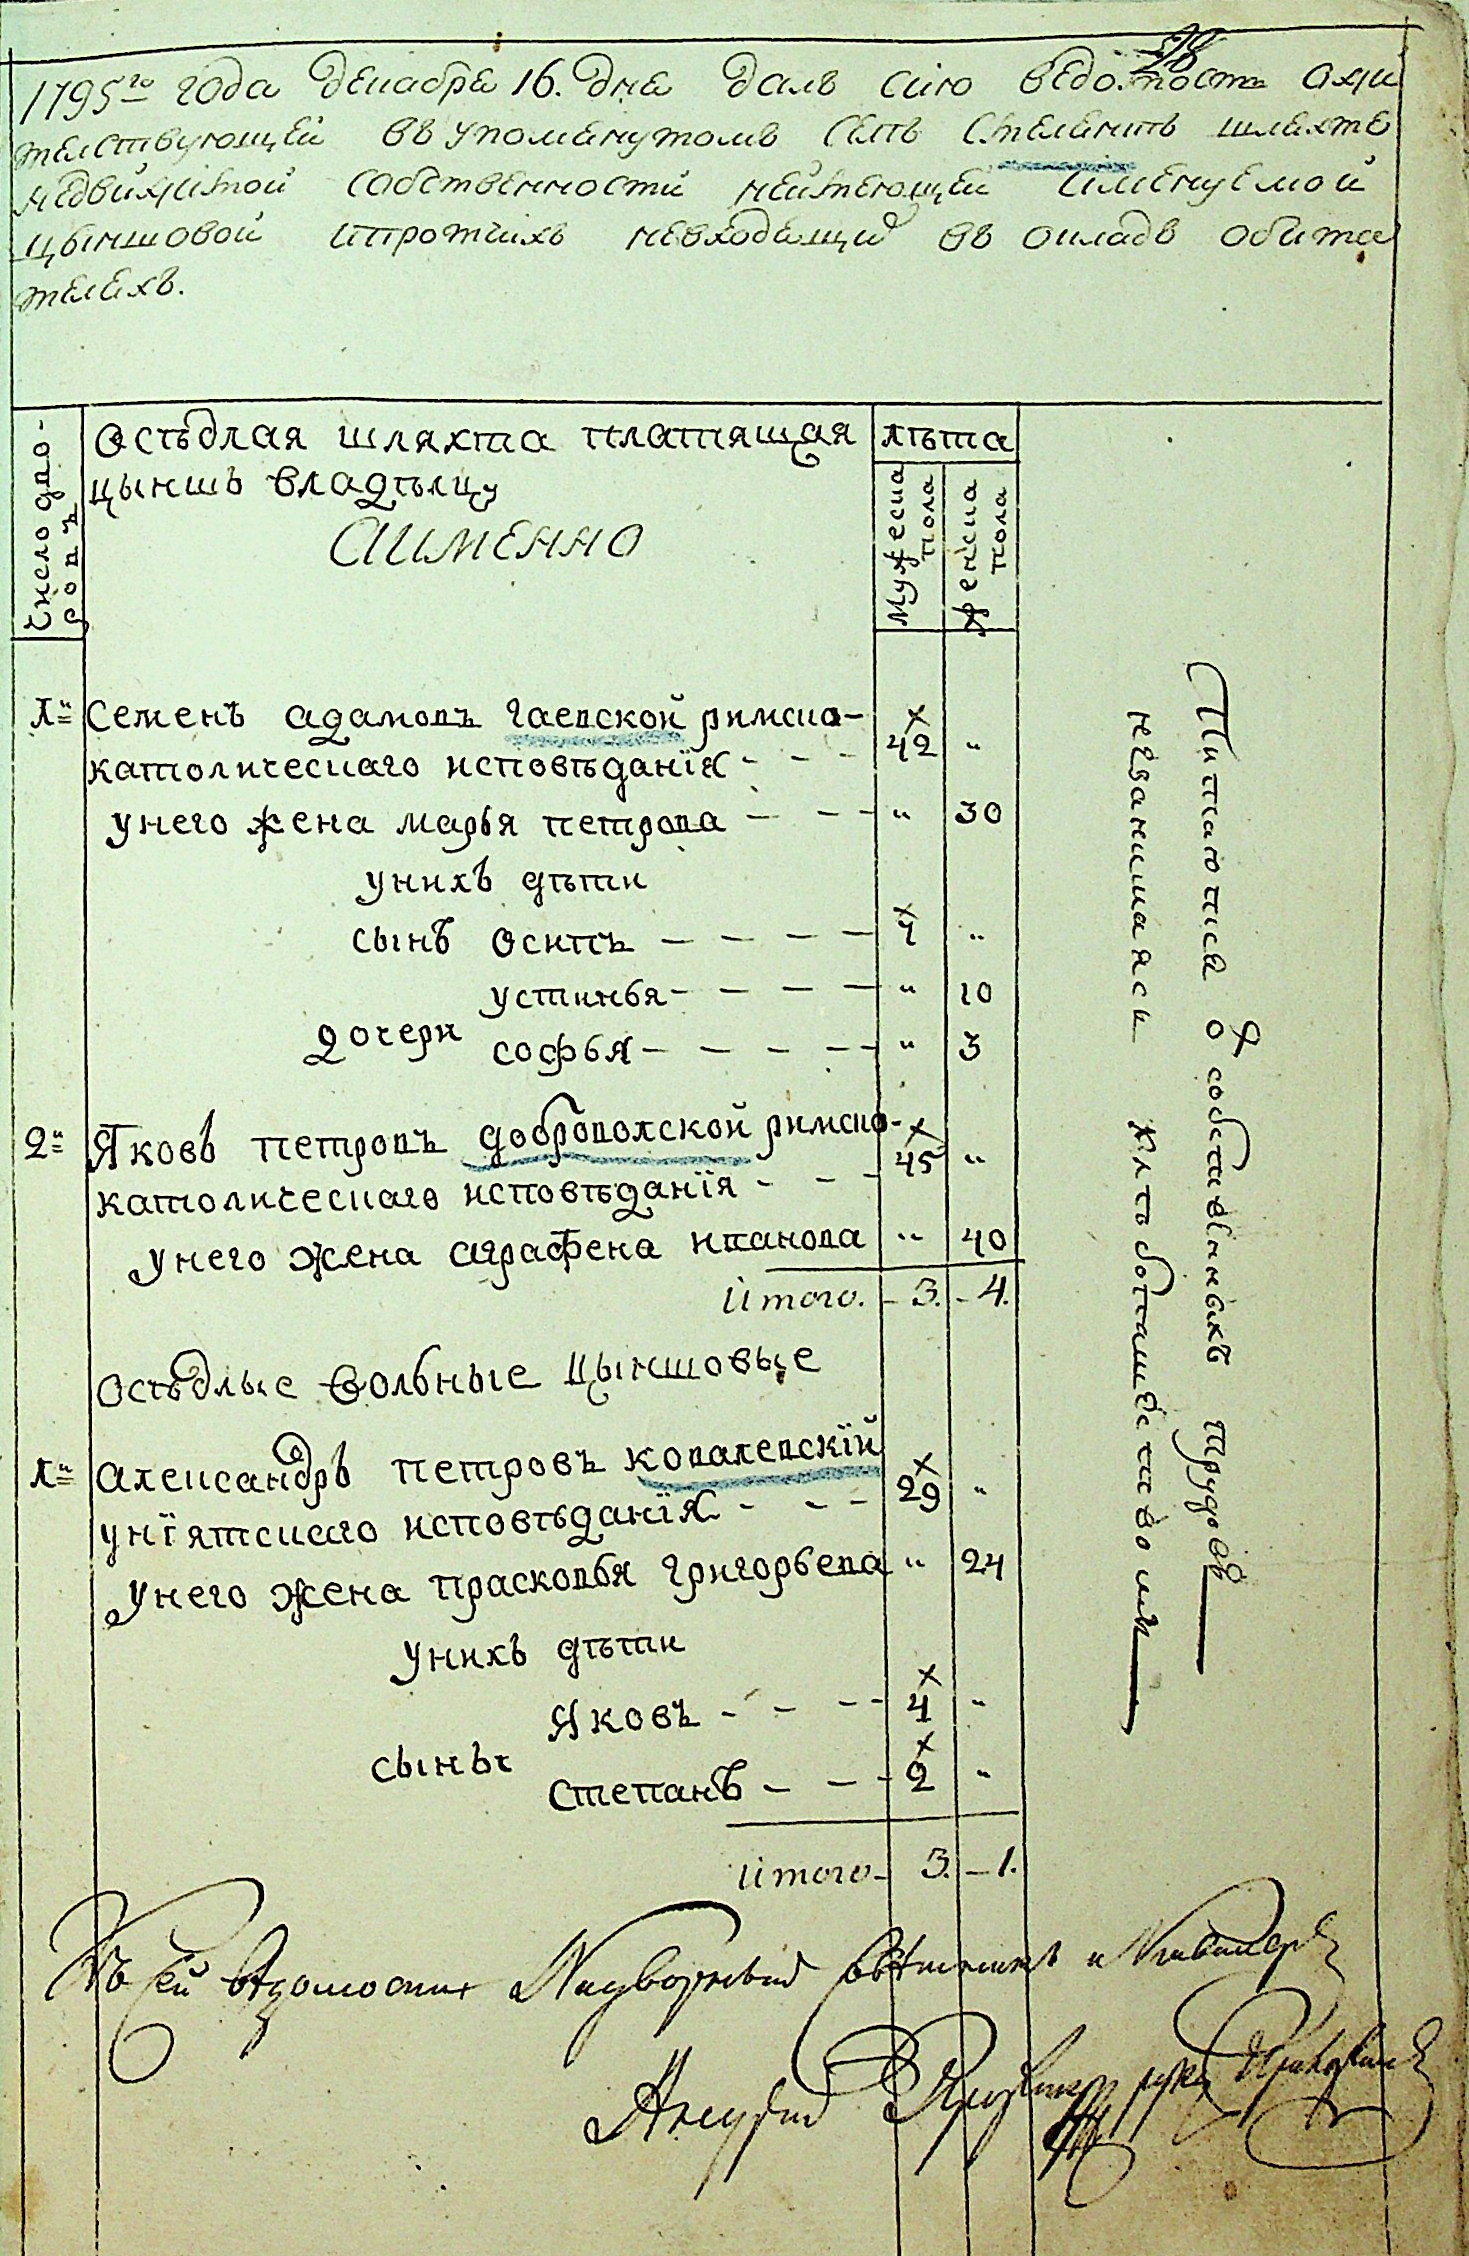 28
1795го года декабря 16. дня далъ сию ведомость ожи
телствующей въ упомянутомъ селѣ Стелянкѣ шляхте
недвижимой собственности неимеющей именуемой
цыншовой ипротчихъ невходящи въ окладъ обита
телехъ.
число дво-
ровъ
Осѣдлая шляхта платящая
цыншъ владѣлцу
АИМЕННО
лѣта
мужеска
пола
женска
пола
1й Семенъ адамовъ гаевской римско-
католическаго исповѣданїя - - - 42 "
унего жена марья петрова - - - " 30
унихъ дѣти
сынъ осипъ - - - - 4 "
устинья - - - - " 10
дочери
софья - - - - - " 3
2й Яковъ петровъ доброволской римско-
католическаго исповѣданїя - - - 45 "
унего жена аграфена иванова " 40
Итого. - 3. - 4.
осѣдлые вольные цыншовые
1й александръ петровъ ковалевскїй
унїятскаго исповѣданїя - - - 29 "
унего жена прасковья григорьева " 24
унихъ дѣти
Яковъ - - - - 4 "
сыны
степанъ - - - 2 "
Итого - 3. - 1.
Питаются о собственныхъ трудовъ
незанимаяси хлѣбопашествомъ
Къ сей ведомости Надворный советникъ и Кавалеръ
Андрей руку приложилъ